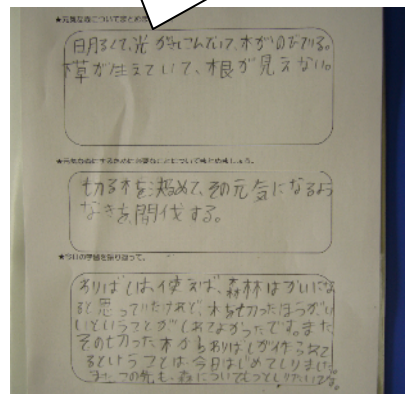 ★元気な森についてまとめ
明るくて、光がさしこんでいて、木がのびている。
草が生えていて、根が見えない。
★元気な森にするために必要なことについてまとめましょう。
切る木を決めて、その元気になるよう
なきを間伐する。
★今日の学習を振り返って。
わりばしは、使えば、森林はかいにな
ると思っていたけれど、木を切ったほうがい
いということがしれてよかったです。また
その切った木からわりばしが作られて
るということは、今日はじめてしりました。
またこの先も、森についてもっとしりたいです。